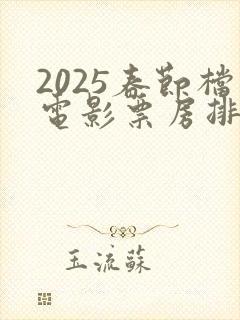 2025春節檔
電影票房排
玉流蘇